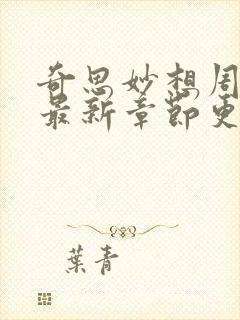 奇思妙想周
最新章节更
葉青